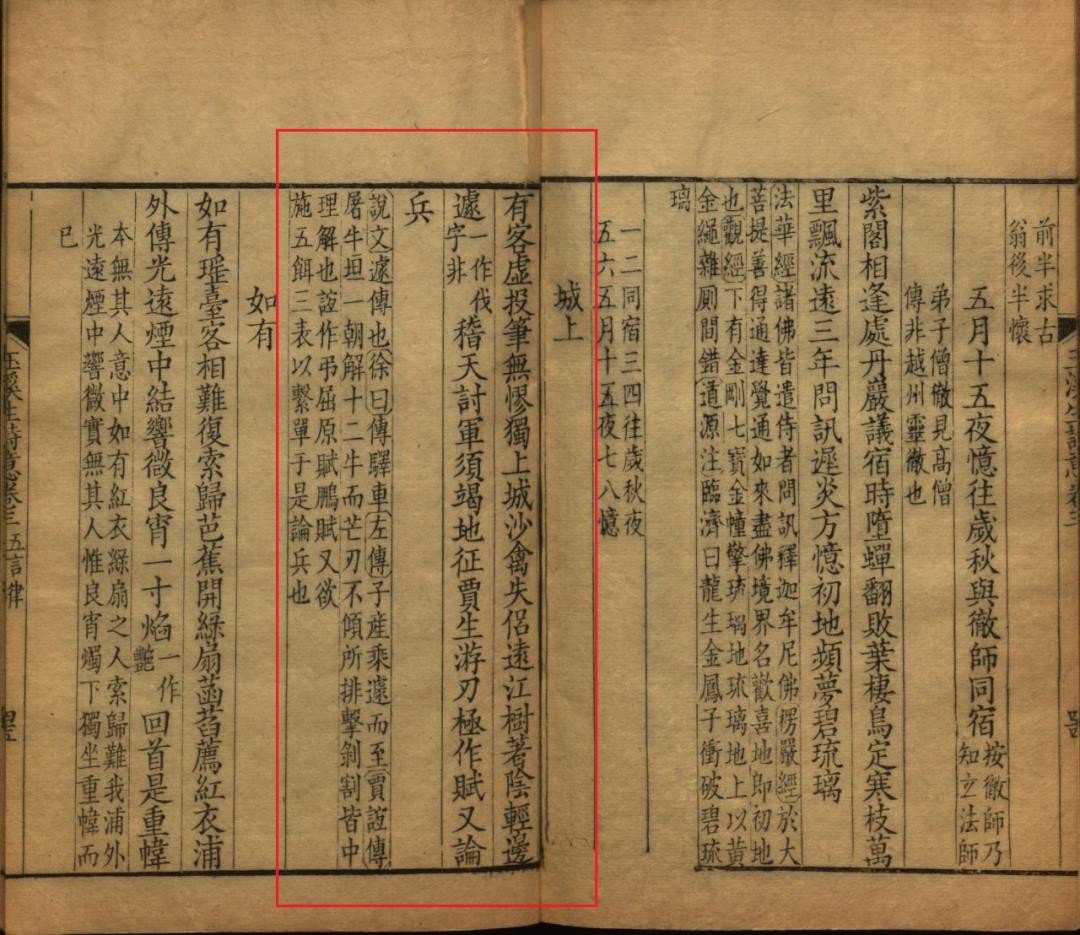 前半求古
翁後半懷
五月十五夜憶往歲秋與徹師同宿按徹師乃
知立法師
弟子僧徹見高僧
傳非越州靈徹也
紫閣相逢處丹巖議宿時墮蟬翻敗葉棲鳥定寒枝萬
里飄流遠三年問訊遲炎方憶初地頻夢碧琉璃
法華經諸佛皆遣侍者問訊釋迦牟尼佛楞嚴經於大
菩提善得通達覺通如來盡佛境界名歡喜地即初地
也觀經下有金剛七寶金幢擎琉璃地琉璃地上以黃
金繩雜廁間錯道源注臨濟曰龍生金鳳子衝破碧琉
璃
一二同宿三四往歲秋夜
五六五月十五夜七八憶
城上
有客虛投筆無憀獨上城沙禽失侶遠江樹著陰輕邊
遽一作伐
字非
稽天討軍須竭地征賈生游刃極作賦又論
兵
說文遽傳也徐曰傳驛車左傳子產乘遽而至賈誼傳
屠牛垣一朝解十二牛而芒刃不傾所排擊剝割皆中
理解也誼作弔屈原賦鵬賦又欲
施五餌三表以繫單于是論兵也
如有
如有瑤臺客相難復索歸芭蕉開綠扇菡萏薦紅衣浦
外傳光遠煙中結響微良宵一寸焰一作
艷
回首是重幃
本無其人意中如有紅衣綠扇之人索歸難我浦外
光遠煙中響微實無其人惟良宵燭下獨坐重幃而
已
玉溪生詩意卷三 五言律